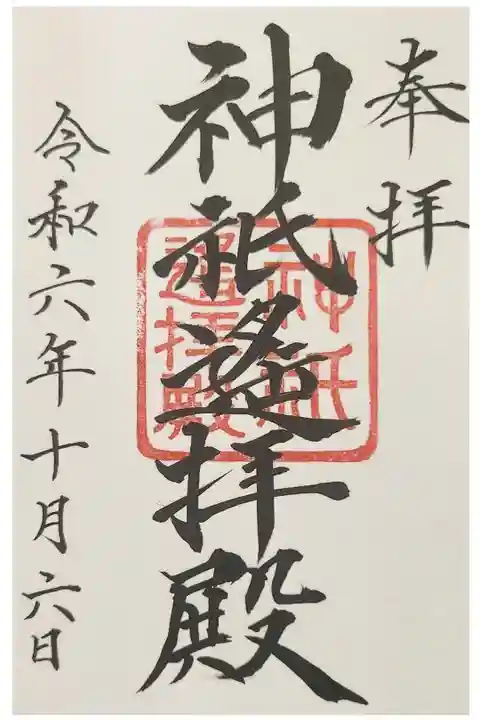 奉拝
神祇遙拝殿
神祇
遙拝殿
令和六年十月六日